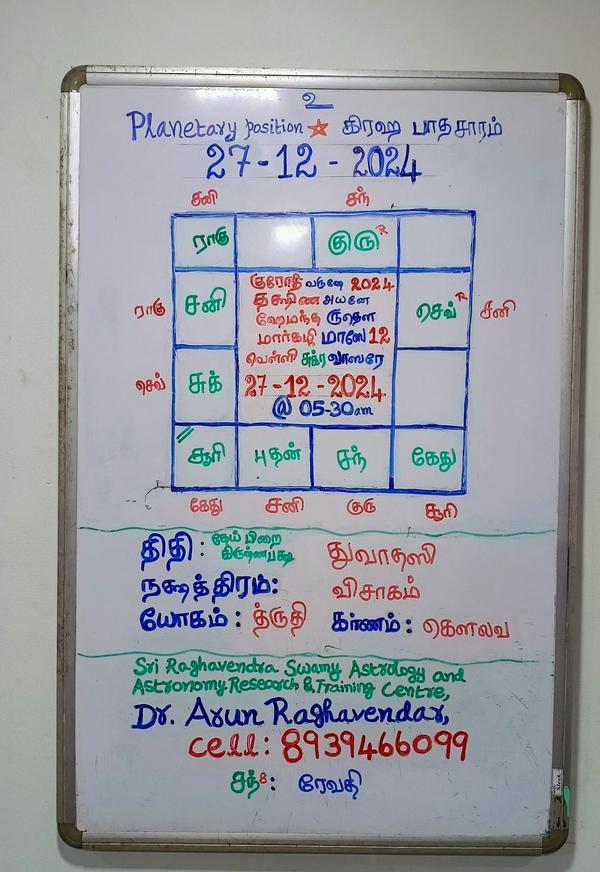 உ
Planetary position ☆ கிரஹ பாதசாரம்
27-12-2024
சனி சந்
ராகு குரு R
ராகு சனி செவ் R சனி
குரோதி வருஷே 2024
தக்ஷிண அயனே
ஹேமந்த ருதௌ
மார்கழி மாஸே 12
வெள்ளி சுக்ர வாஸரே
27-12-2024
@ 05-30am
செவ் சுக்
சூரி புதன் சந் கேது
கேது சனி குரு சூரி
திதி : தேய் பிறை கிருஷ்ணபக்ஷ துவாதஸி
நக்ஷத்திரம்: விசாகம்
யோகம் : த்ருதி கர்ணம் : கௌலவ
Sri Raghavendra Swamy Astrology and
Astronomy Research & Training Centre,
Dr. Arun Raghavendar,
Cell: 8939466099
சந் 8 : ரேவதி